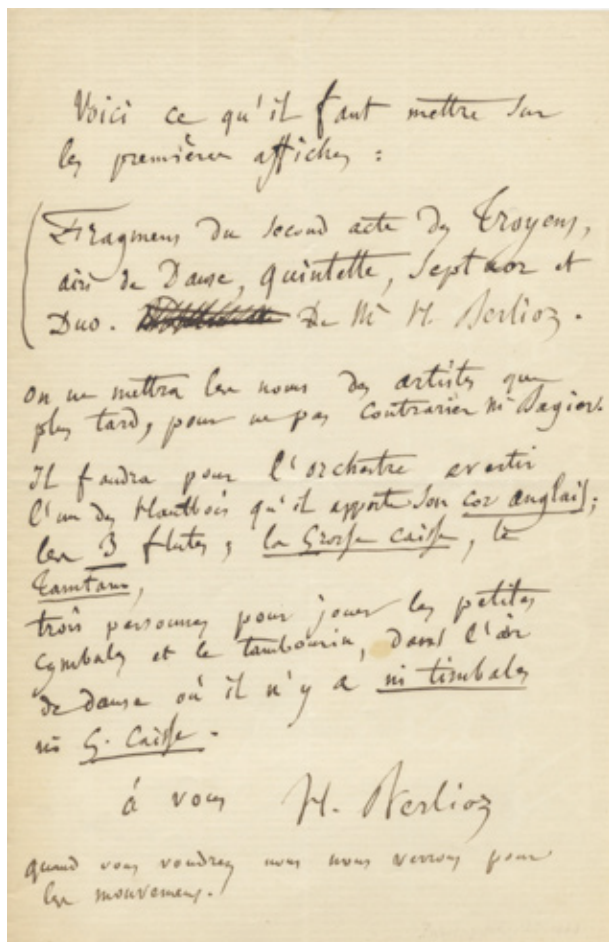 Voici ce qu'il faut mettre sur
les premières affiches :
Fragmens du second acte des Troyens,
airs de Danse, Quintette, Septuor et
Duo. De Mr H. Berlioz.
On ne mettra les noms des artistes que
plus tard, pour ne pas contrarier Mr Bagier.
Il faudra pour l'orchestre avertir
l'un des Hautbois qu'il apporte son cor anglais;
les 3 flutes, la Grosse caisse, le
Tamtam,
trois personnes pour jouer les petites
cymbales et le tambourin, dans l'air
de danse où il n'y a ni timbales
ni G. Caisse.
à vous H. Berlioz
quand vous voudrez nous nous verrons pour
les mouvemens.